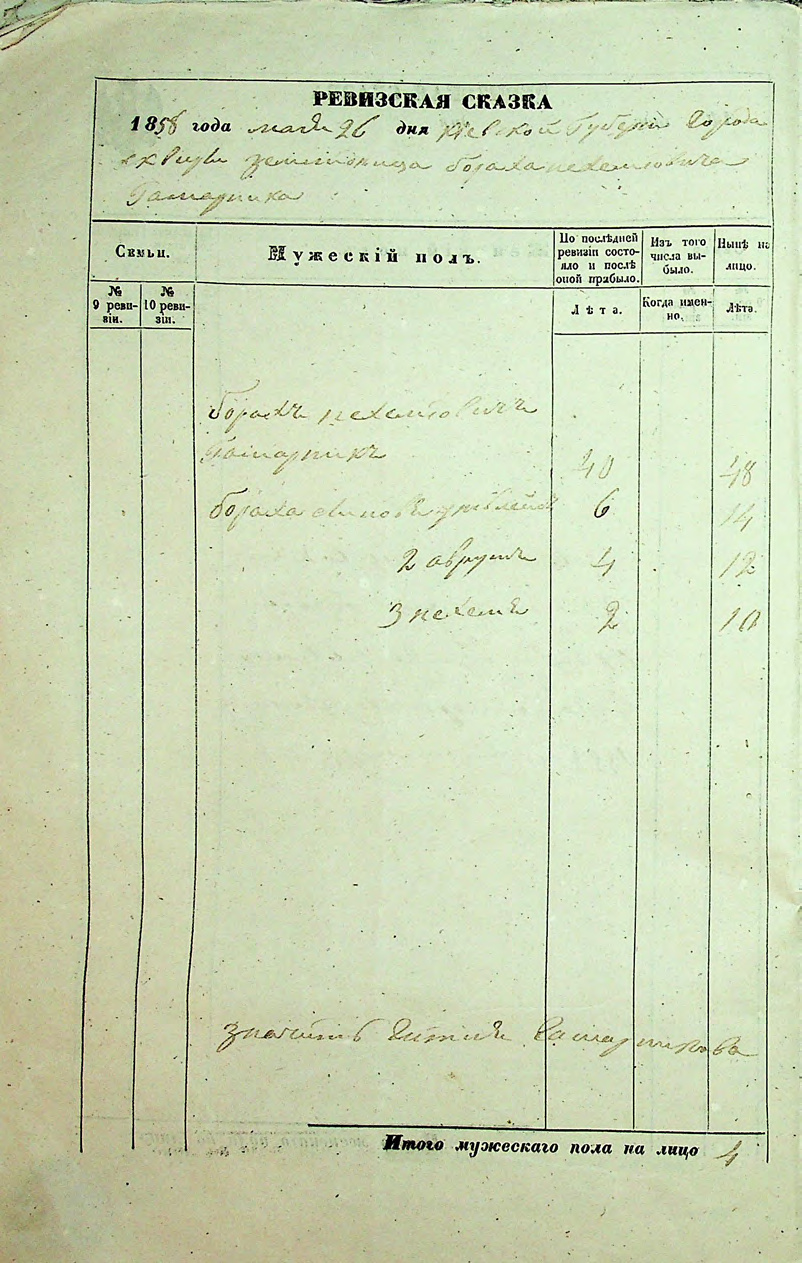 РЕВИЗСКАЯ СКАЗКА
1858 года маия 26 дня Киевской Губернii Города
Бораха Нехемовича
Гамарника
Семьи.
Мужескій полъ.
По послѣдней ревизіи состояло и послѣ оной прибыло.
Изъ того числа выбыло.
Нынѣ на лицо.
№ 9 ревизіи.
№ 10 ревизіи.
Лѣта.
Когда именно.
Лѣта.
Борахъ Нехемовичъ
Гамарникъ 40 48
Бораха сыновя 6 14
2 аврумъ 4 12
3 нехемя 2 10
Гамарникова
Итого мужескаго пола на лицо 4